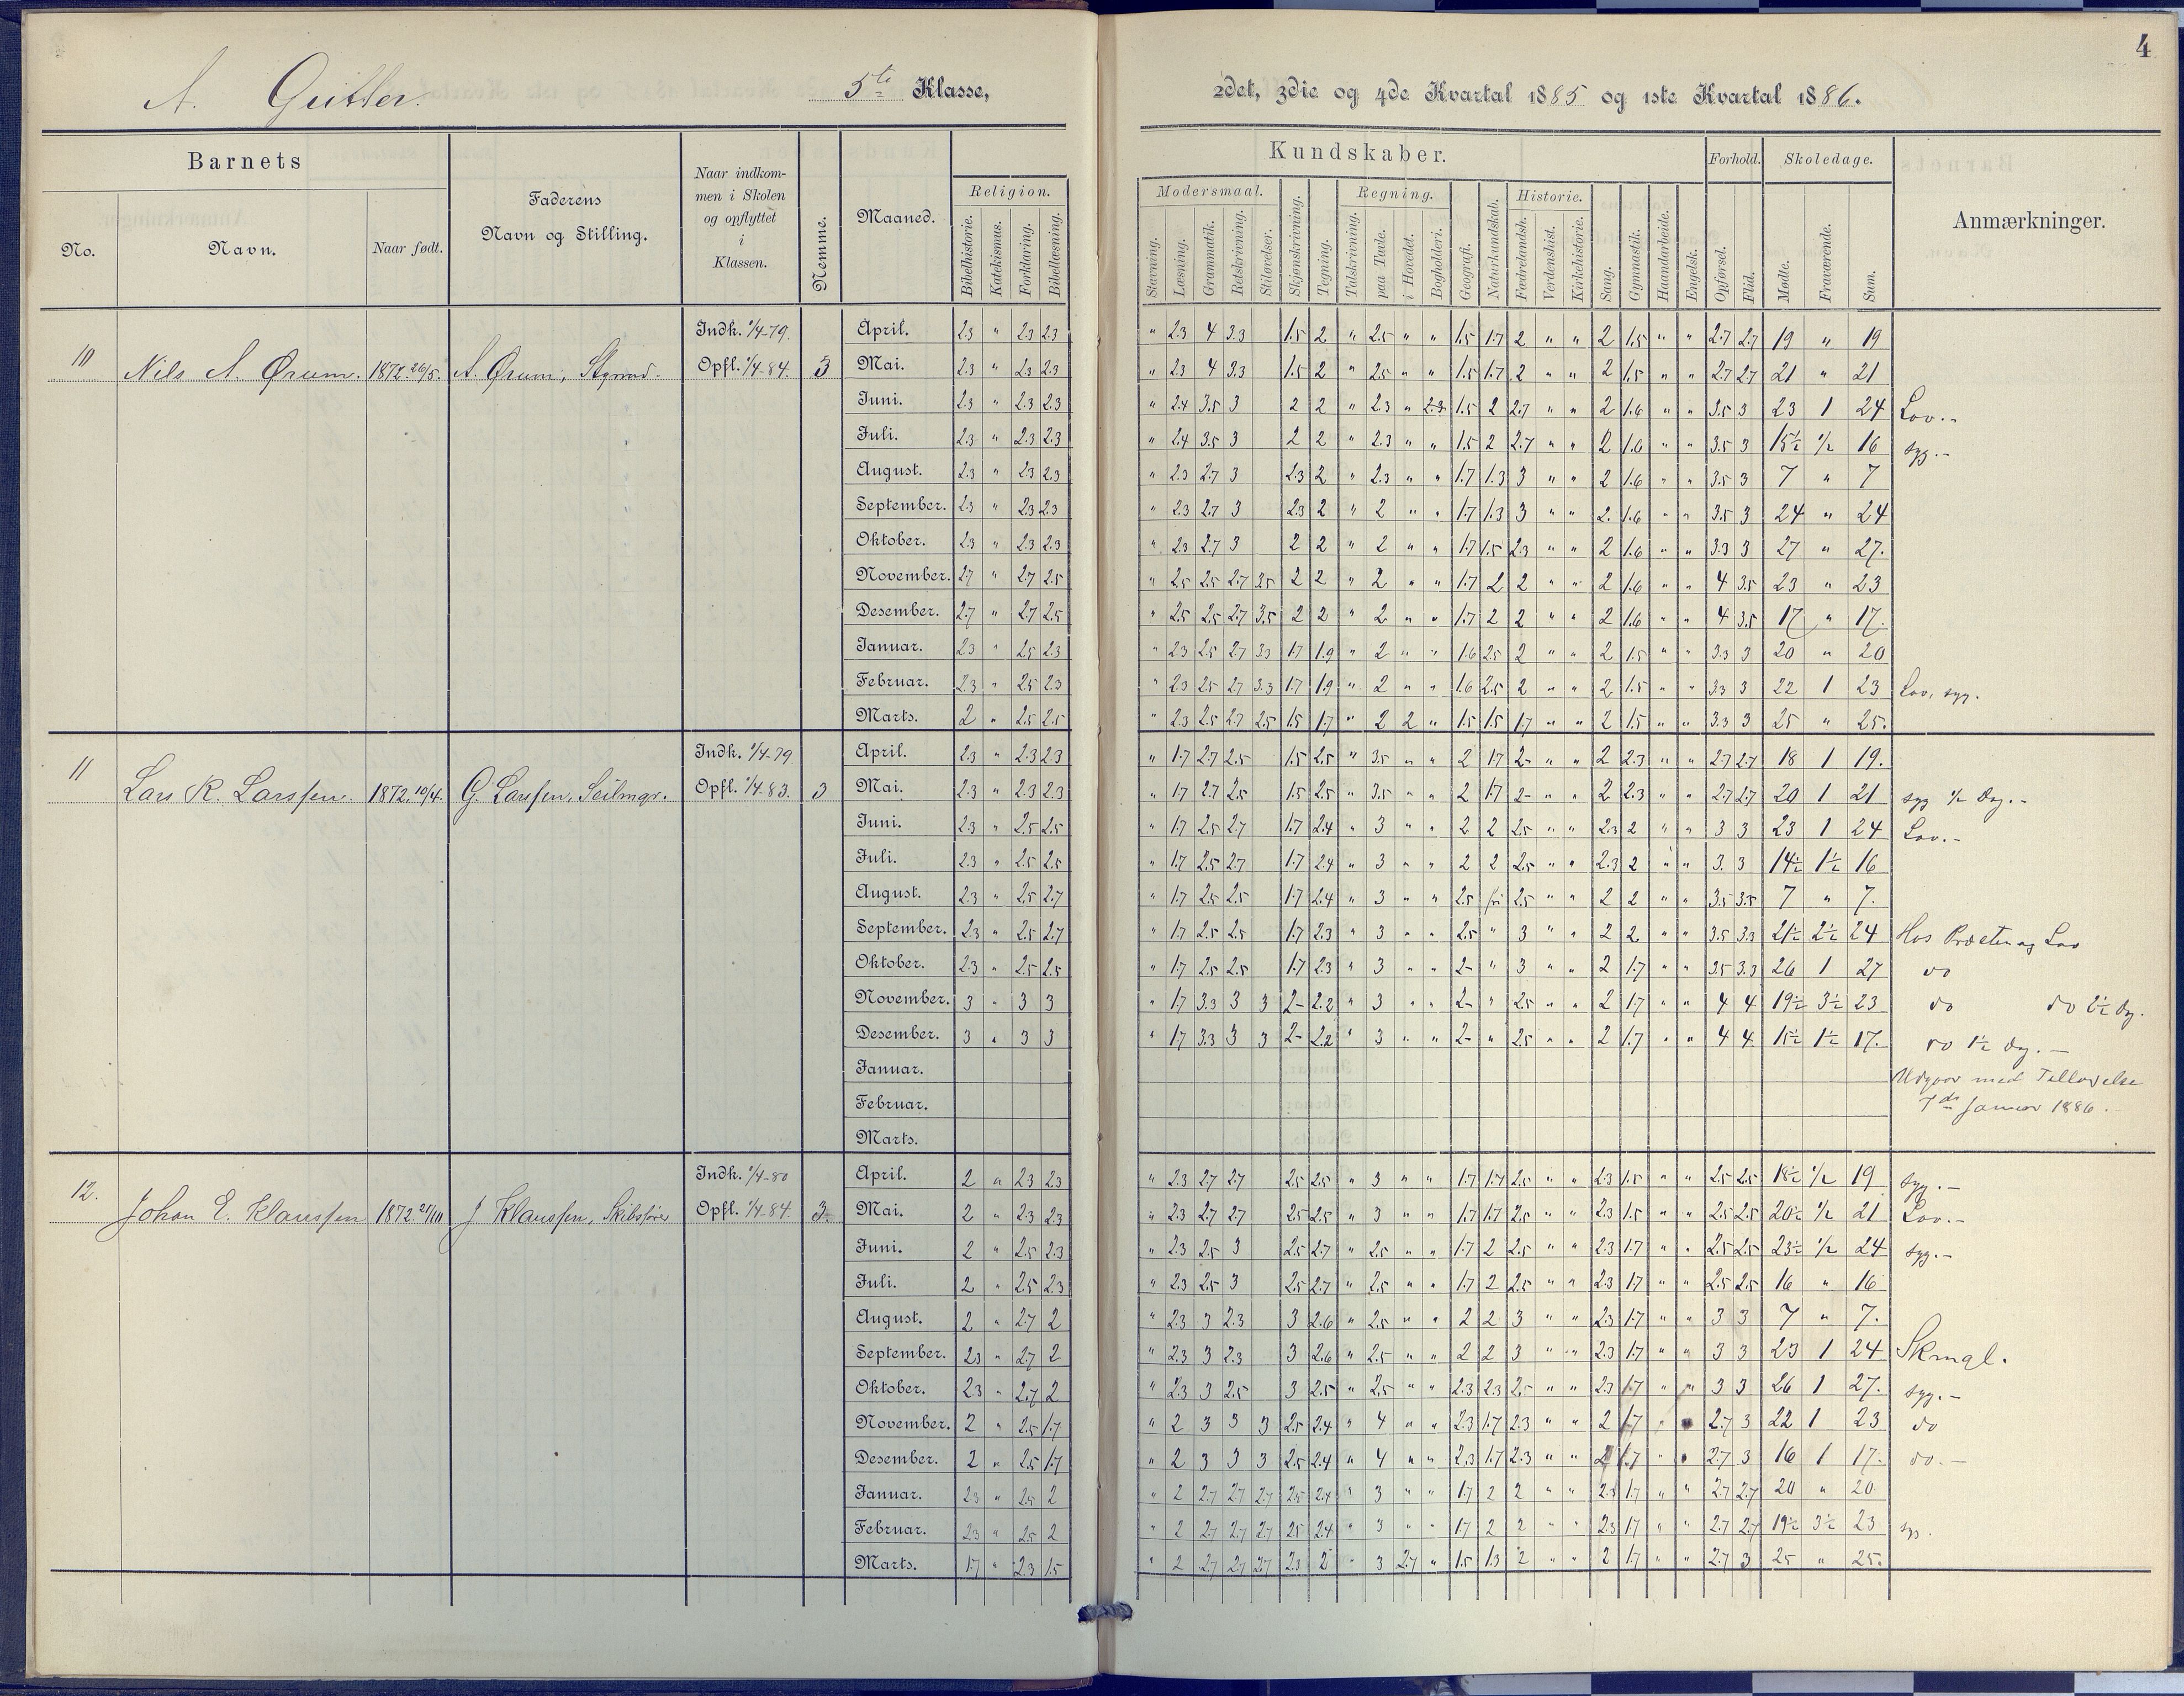 4
A. Gutter. 5te Klasse, 2det, 3die og 4de Kvartal 1885 og 1ste Kvartal 1886.
Barnets Kundskaber. Forhold. Skoledage.
No. Navn. Naar født. Faderens Navn og Stilling. Naar indkommen i Skolen og opflyttet i Klassen. Nemme. Maaned. Religion. Modersmaal. Regning. Historie. Anmærkninger.
Bibelhistorie. Katekismus. Forklaring. Bibellæsning. Stavning. Læsning. Grammatik. Retskrivning. Stiløvelser. Skjønskrivning. Tegning. Talskrivning. paa Tavle. i Hovedet. Bogholderi. Geografi. Naturkundskab. Fædrelandsh. Verdenshist. Kirkehistorie. Sang. Gymnastik. Haandarbeide. Engelsk. Opførsel. Flid. Mødte. Fraværende. Sum.
10 Nils A. Ørum. 1872 26/5. A. Ørum, Styrmd. Indk. 1/4-79. Opfl. 1/4-84. 3
April. 2.3 " 2.3 2.3 " 2.3 4 3.3 1.5 2 " 2.5 " " 1.5 1.7 2 " " 2 1.5 " " 2.7 2.7 19 " 19
Mai. 2.3 " 2.3 2.3 " 2.3 4 3.3 1.5 2 " 2.5 " " 1.5 1.7 2 " " 2 1.5 " " 2.7 2.7 21 " 21
Juni. 2.3 " 2.3 2.3 " 2.4 3.5 3 2 2 " 2.3 " 2.3 1.5 2 2.7 " " 2 1.6 " " 3.5 3 23 1 24 Lov.-
Juli. 2.3 " 2.3 2.3 " 2.4 3.5 3 2 2 " 2.3 " " 1.5 2 2.7 " " 2 1.6 " " 3.5 3 15½ 1/2 16 syg.-
August. 2.3 " 2.3 2.3 " 2.3 2.7 3 2.3 2 " 2.3 " " 1.7 1.3 3 " " 2 1.6 " " 3.5 3 7 " 7
September. 2.3 " 2.3 2.3 " 2.3 2.7 3 2.3 2 " 2 " " 1.7 1.3 3 " " 2. 1.6 " " 3.5 3 24 " 24
Oktober. 2.3 " 2.3 2.3 " 2.3 2.7 3 2 2 " 2 " " 1.7 1.5 2.3 " " 2 1.6 " " 3.3 3 27 " 27.
November. 2.7 " 2.7 2.5 " 2.5 2.5 2.7 3.5 2 2 " 2 " " 1.7 2 2 " " 2 1.6 " " 4 3.5 23 " 23
Desember. 2.7 " 2.7 2.5 " 2.5 2.5 2.7 3.5 2 2 " 2 " " 1.7 2 2 " " 2 1.6 " " 4 3.5 17 " 17.
Januar. 2.3 " 2.5 2.3 " 2.3 2.5 2.7 3.3 1.7 1.9 " 2 " " 1.6 2.5 2 " " 2 1.5 " " 3.3 3 20 " 20
Februar. 2.3 " 2.5 2.3 " 2.3 2.5 2.7 3.3 1.7 1.9 " 2 " " 1.6 2.5 2 " " 2 1.5 " " 3.3 3 22 1 23 Lov, syg.
Marts. 2 " 2.5 2.5 " 2.3 2.5 2.7 2.5 1.5 1.7 " 2 2 " 1.5 1.5 1.7 " " 2 1.5 " " 3.3 3 25 " 25.
11 Lars R. Larssen. 1872. 10/4. G. Larssen, Seilmgr. Indk. 1/4-79 Opfl. 1/4-83. 3
April. 2.3 " 2.3 2.3 " 1.7 2.7 2.5 1.5 2.5 " 3.5 " " 2 1.7 2- " " 2 2.3 " " 2.7 2.7 18 1 19.
Mai. 2.3 " 2.3 2.3 " 1.7 2.7 2.5 1.5 2.5 " 3.5 " " 2 1.7 2- " " 2 2.3 " " 2.7 2.7 20 1 21 syg ½ Dag.-
Juni. 2.3 " 2.5 2.5 " 1.7 2.5 2.7 1.7 2.4 " 3 " " 2 2 2.5 " " 2.3 2 " " 3 3 23 1 24 Lov.-
Juli. 2.3 " 2.5 2.5 " 1.7 2.5 2.7 1.7 2.4 " 3 " " 2 2 2.5 " " 2.3 2 " " 3. 3 14½ 1½ 16
August. 2.3 " 2.5 2.7 " 1.7 2.5 2.5 1.7 2.4 " 3 " " 2.5 fri 2.5 " " 2 2 " " 3.5 3.5 7 " 7.
September. 2.3 " 2.5 2.7 " 1.7 2.5 2.5 1.7 2.3 " 3 " " 2.5 " 3 " " 2 2 " " 3.5 3.3 21½ 2½ 24 Hos Præsten og Lov
Oktober. 2.3 " 2.5 2.5 " 1.7 2.5 2.5 1.7 2.3 " 3 " " 2- " 3 " " 2 1.7 " " 3.5 3.3 26 1 27 do
November. 3 " 3 3 " 1.7 3.3 3 3 2- 2.2 " 3 " " 2- " 2.5 " " 2 1.7 " " 4 4 19½ 3½ 23 do do 2½ Dg.
Desember. 3 " 3 3 " 1.7 3.3 3 3 2- 2.2 " 3 " " 2- " 2.5 " " 2 1.7 " " 4 4 15½ 1½ 17. do 1½ dg.-
Januar. Udgaar med Tilladelse
Februar. 7de Januar 1886.
Marts.
12. Johan E. Klaussen 1872. 21/10 J. Klaussen, Skibsfører Indk. 1/4-80 Opfl. 1/4-84. 3.
April. 2 " 2.3 2.3 " 2.3 2.7 2.7 2.5 2.5 " 3 " " 1.7 1.7 2.5 " " 2.3 1.5 " " 2.5 2.5 18½ 1/2 19 syg.-
Mai. 2 " 2.3 2.3 " 2.3 2.7 2.7 2.5 2.5 " 3 " " 1.7 1.7 2.5 " " 2.3 1.5 " " 2.5 2.5 20½ 1/2 21 Lov.-
Juni. 2 " 2.5 2.3 " 2.3 2.5 3 2.5 2.7 " 2.5 " " 1.7 2 2.5 " " 2.3 1.7 " " 2.5 2.5 23½ 1/2 24 syg.-
Juli. 2 " 2.5 2.3 " 2.3 2.5 3 2.5 2.7 " 2.5 " " 1.7 2 2.5 " " 2.3 1.7 " " 2.5 2.5 16 " 16
August. 2 " 2.7 2 " 2.3 3 2.3 3 2.6 " 2.5 " " 2 2 3 " " 2.3 1.7 " " 3 3 7 " 7.
September. 2.3 " 2.7 2 " 2.3 3 2.3 3 2.6 " 2.5 " " 2 2 3 " " 2.3 1.7 " " 3 3 23 1 24 Skmgl.
Oktober. 2.3 " 2.7 2 " 2.3 3 2.5 3 2.5 " 2.5 " " 2.3 2.3 2.5 " " 2.3 1.7 " " 3 3 26 1 27. syg.-
November. 2 " 2.5 1.7 " 2 3 3 3 2.5 2.4 " 4 " " 2.3 1.7 2.3 " " 2 1.7 " " 2.7 3 22 1 23 do
Desember. 2 " 2.5 1.7 " 2 3 3 3 2.5 2.4 " 4 " " 2.3 1.7 2.3 " " 2 1.7 " " 2.7 3 16 1 17. do.-
Januar. 2.3 " 2.5 2 " 2 2.7 2.7 2.7 2.5 2.4 " 3 " " 1.7 2 2 " " 2.3 1.7 " " 2.7 2.7 20 " 20
Februar. 2.3 " 2.5 2 " 2 2.7 2.7 2.7 2.5 2.4 " 3 " " 1.7 2 2 " " 2.3 1.7 " " 2.7 2.7 19½ 3½ 23 syg.
Marts. 1.7 " 2.3 1.5 " 2 2.7 2.7 2.7 2.3 2 " 3 2.7 " 1.5 1.3 2 " " 2 1.7 " " 2.7 3 25 " 25.